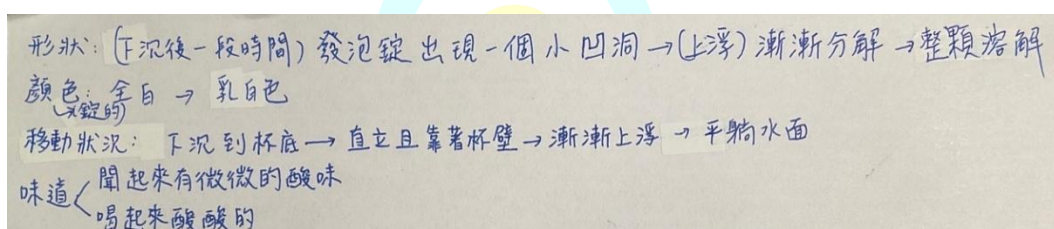 形狀:(下沉後一段時間)發泡錠出現一個小凹洞→(上浮)漸漸分解→整顆溶解
顏色:全白→乳白色
錠的)
移動狀況:下沉到杯底→直立且靠著杯壁→漸漸上浮→平躺水面
味道<聞起來有微微的酸味
喝起來酸酸的